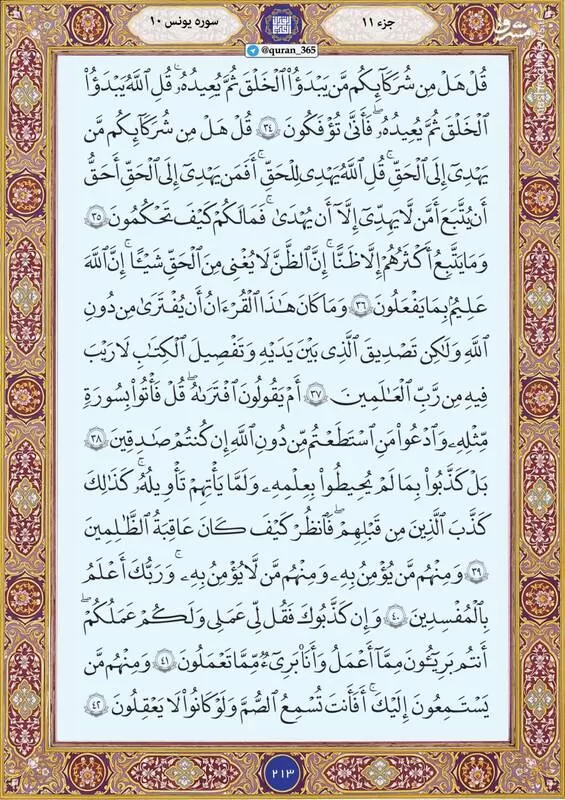 جزء ۱۱
سوره یونس ۱۰
@quran_365
قُلْ هَلْ مِن شُرَكَآئِكُم مَّن يَبْدَؤُا۟ ٱلْخَلْقَ ثُمَّ يُعِيدُهُۥ ۚ قُلِ ٱللَّهُ يَبْدَؤُا۟
ٱلْخَلْقَ ثُمَّ يُعِيدُهُۥ ۖ فَأَنَّىٰ تُؤْفَكُونَ ٣٤ قُلْ هَلْ مِن شُرَكَآئِكُم مَّن
يَهْدِىٓ إِلَى ٱلْحَقِّ ۚ قُلِ ٱللَّهُ يَهْدِى لِلْحَقِّ ۗ أَفَمَن يَهْدِىٓ إِلَى ٱلْحَقِّ أَحَقُّ
أَن يُتَّبَعَ أَمَّن لَّا يَهِدِّىٓ إِلَّآ أَن يُهْدَىٰ ۖ فَمَا لَكُمْ كَيْفَ تَحْكُمُونَ ٣٥
وَمَا يَتَّبِعُ أَكْثَرُهُمْ إِلَّا ظَنًّا ۚ إِنَّ ٱلظَّنَّ لَا يُغْنِى مِنَ ٱلْحَقِّ شَيْـًٔا ۚ إِنَّ ٱللَّهَ
عَلِيمٌۢ بِمَا يَفْعَلُونَ ٣٦ وَمَا كَانَ هَـٰذَا ٱلْقُرْءَانُ أَن يُفْتَرَىٰ مِن دُونِ
ٱللَّهِ وَلَـٰكِن تَصْدِيقَ ٱلَّذِى بَيْنَ يَدَيْهِ وَتَفْصِيلَ ٱلْكِتَـٰبِ لَا رَيْبَ
فِيهِ مِن رَّبِّ ٱلْعَـٰلَمِينَ ٣٧ أَمْ يَقُولُونَ ٱفْتَرَىٰهُ ۖ قُلْ فَأْتُوا۟ بِسُورَةٍ
مِّثْلِهِۦ وَٱدْعُوا۟ مَنِ ٱسْتَطَعْتُم مِّن دُونِ ٱللَّهِ إِن كُنتُمْ صَـٰدِقِينَ ٣٨
بَلْ كَذَّبُوا۟ بِمَا لَمْ يُحِيطُوا۟ بِعِلْمِهِۦ وَلَمَّا يَأْتِهِمْ تَأْوِيلُهُۥ ۚ كَذَٰلِكَ
كَذَّبَ ٱلَّذِينَ مِن قَبْلِهِمْ ۖ فَٱنظُرْ كَيْفَ كَانَ عَـٰقِبَةُ ٱلظَّـٰلِمِينَ
٣٩ وَمِنْهُم مَّن يُؤْمِنُ بِهِۦ وَمِنْهُم مَّن لَّا يُؤْمِنُ بِهِۦ ۚ وَرَبُّكَ أَعْلَمُ
بِٱلْمُفْسِدِينَ ٤٠ وَإِن كَذَّبُوكَ فَقُل لِّى عَمَلِى وَلَكُمْ عَمَلُكُمْ ۖ
أَنتُم بَرِيٓـُٔونَ مِمَّآ أَعْمَلُ وَأَنَا۠ بَرِىٓءٌ مِّمَّا تَعْمَلُونَ ٤١ وَمِنْهُم مَّن
يَسْتَمِعُونَ إِلَيْكَ ۚ أَفَأَنتَ تُسْمِعُ ٱلصُّمَّ وَلَوْ كَانُوا۟ لَا يَعْقِلُونَ ٤٢
۲۱۳